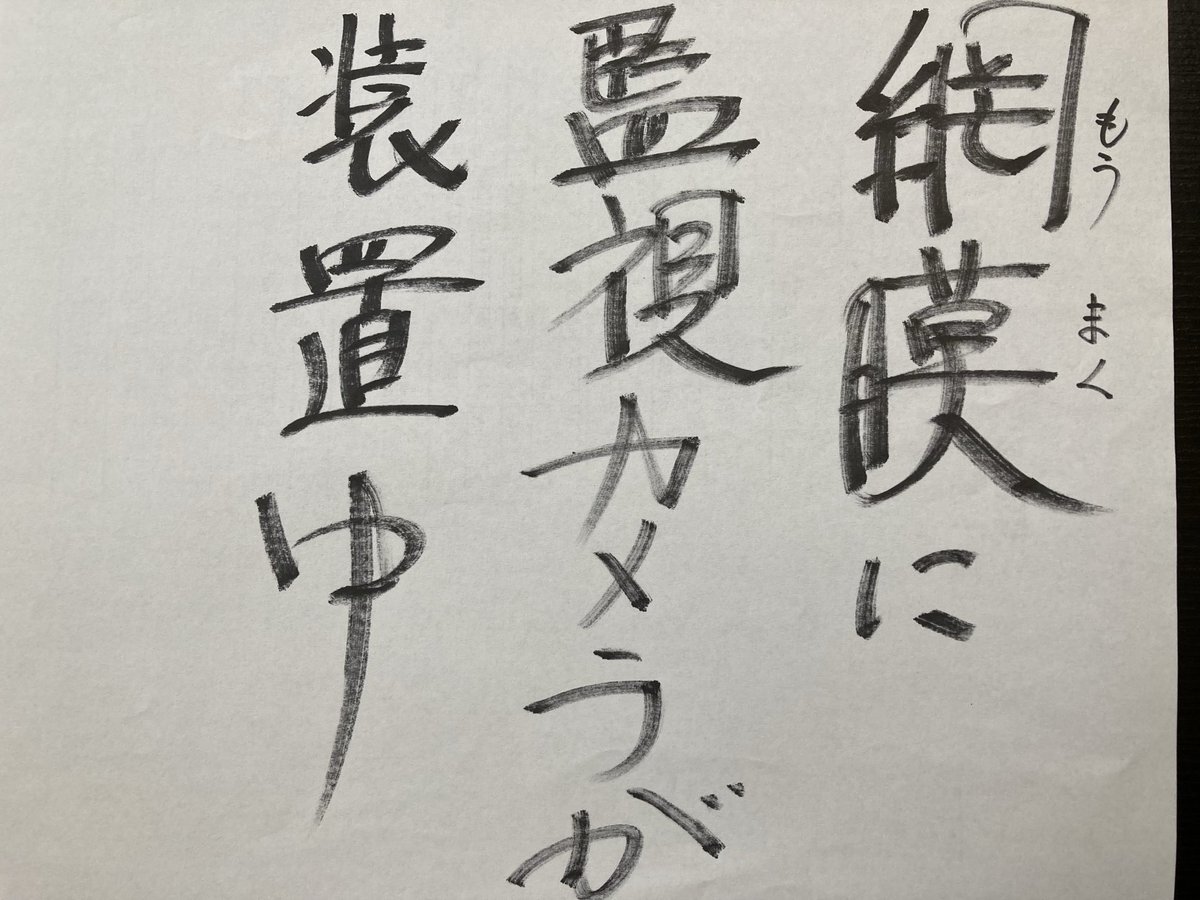 網膜に
もうまく
監視カメラが
装置中